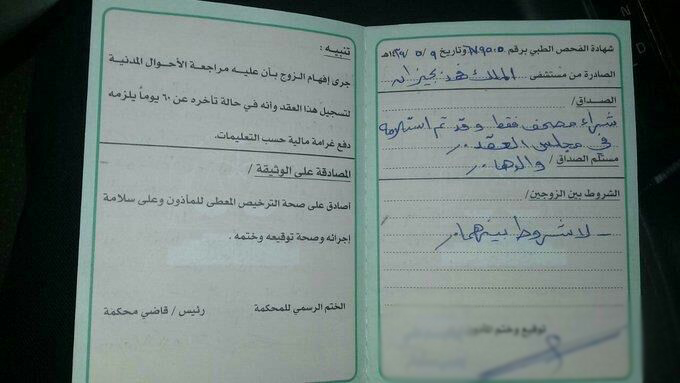 شهادة الفحص الطبي برقم ٧٩٥٠٥ وتاريخ ١٤٣٩/٥/٩هـ
الصادرة من مستشفى الملك فهد بجيزان
الصداق /
شراء مصحف فقط وقد تم استلامه
في مجلس العقد .
مستلم الصداق / والدها .
الشروط بين الزوجين /
- لا شروط بينهما .
توقيع وختم المأذون
تنبيه :
جرى إفهام الزوج بأن عليه مراجعة الأحوال المدنية
لتسجيل هذا العقد وأنه في حالة تأخره عن ٦٠ يوماً يلزمه
دفع غرامة مالية حسب التعليمات.
المصادقة على الوثيقة /
أصادق على صحة الترخيص المعطى للمأذون وعلى سلامة
إجرائه وصحة توقيعه وختمه .
الختم الرسمي للمحكمة
رئيس / قاضي محكمة